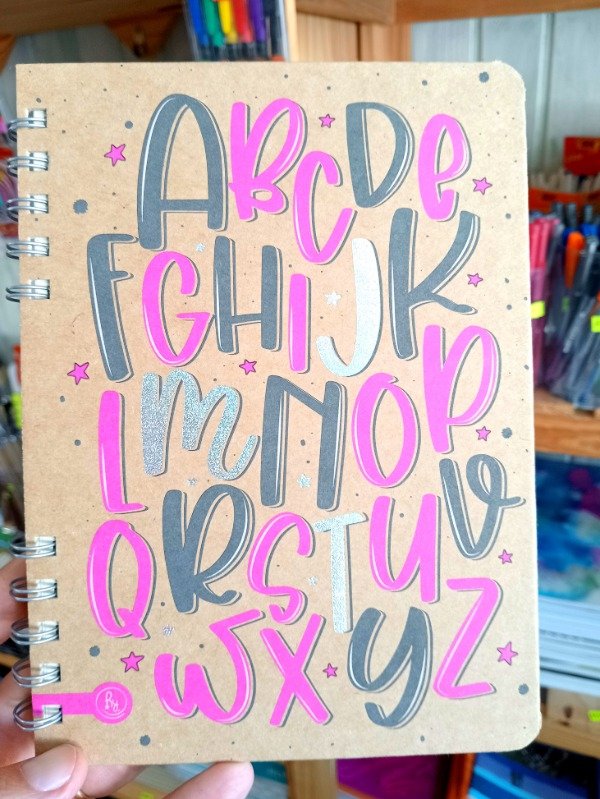 ABCDe
FGHIJK
LMNOP
QRSTUV
WXYZ